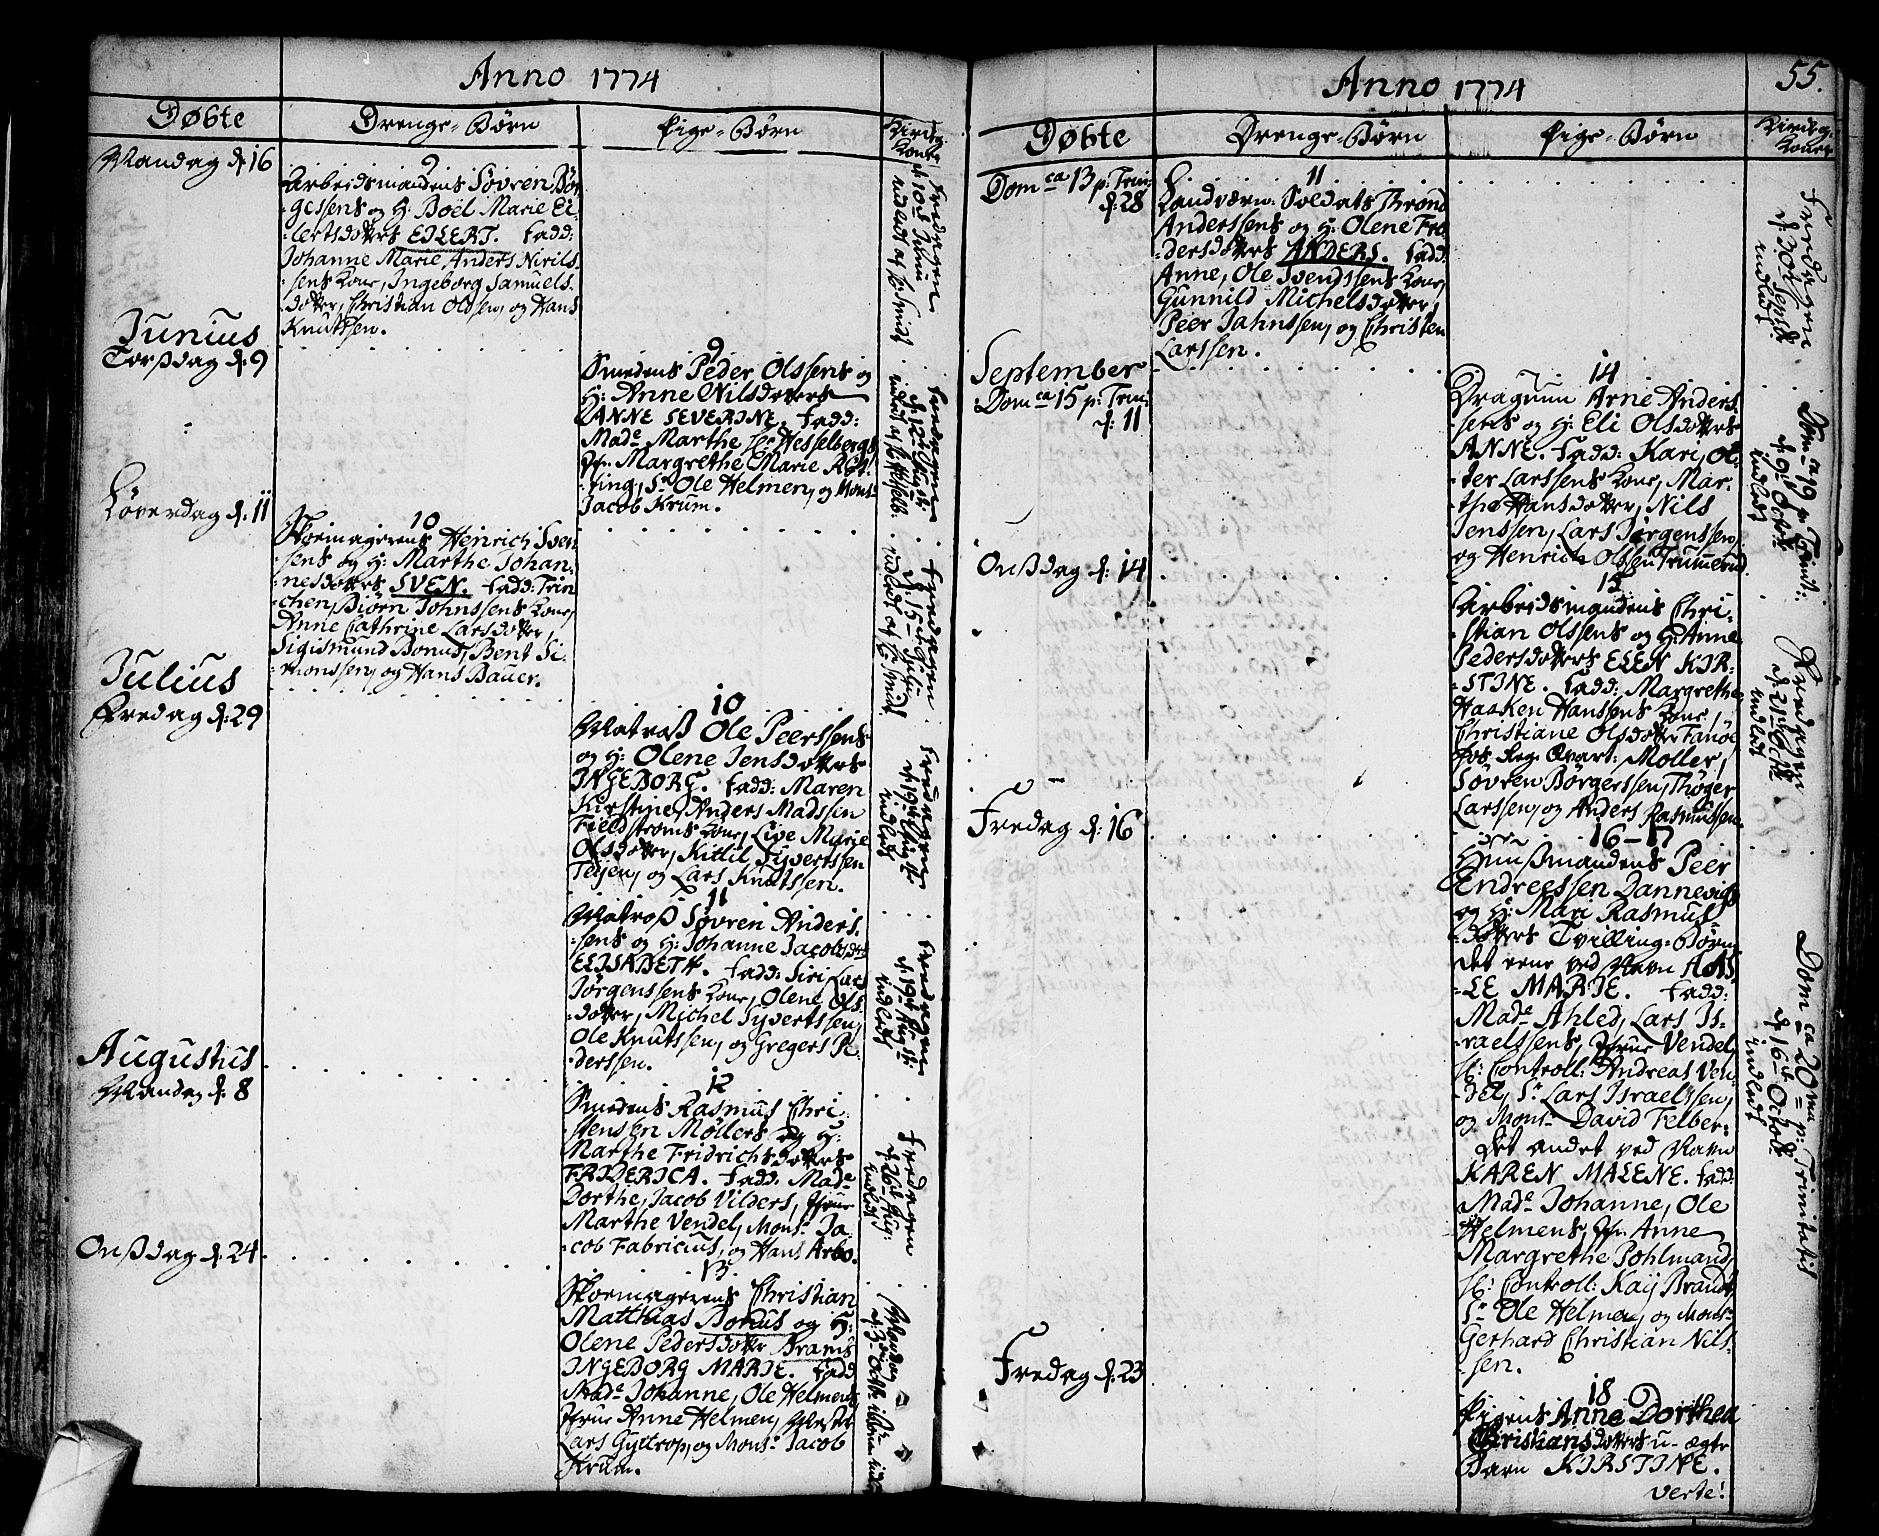 Anno 1774
Døbte
Drenge-Børn
Pige-Børn
Kirkeg: Koner
Mandag d. 16
9
Arbeidsmandens Søvren Bør-
-gessens og H: Boël Marie Ei-
-lertsdotters EILERT. Fadd:
Johanne Marie, Anders Nirils-
-sens Kone, Ingeborg Samuels-
dotter, Christian Olssen, og Hans
Knutssen.
Fredagen d. 10de Junii indledt af H: Smidt
Junius
Torßdag d. 9
9
Smedens Peder Olssens og
H: Anne Nilsdotters
ANNE SEVERINE. Fadd:
Made Marthe Hesselberg,
Jfr. Margrethe Marie Röt-
-ting, Sr. Ole Helmen, og Mons.
Jacob Krum.
Løverdag d. 11
10
Skoemagerens Henrich Sven-
-sens og H: Marthe Johan-
-nesdotters SVEN. Fadd: Trin-
-chen, Biørn Johnssens Kone,
Anne Cathrine Larsdotter,
Sigismund Bonus, Bent Si-
-monssen, og Hans Bauer.
Julius
Fredag d. 29
10
Matroß Ole Peerssens
og H: Olene Jensdotters
INGEBORG. Fadd: Maren
Kirstine, Anders Madssen
Fieldstroms Kone, Live Marie
Olsdotter, Kittil Syvertssen
Teyen, og Lars Knutssen.
Fredagen d. 19de Aug. indledt
11
Matroß Søvren Anders-
-sens og H: Johanne Jacobsdtrs
ELISABETH. Fadd: Siri Lars
Jørgenssens Kone, Olene Ols-
-dotter, Michel Syvertssen,
Ole Knutssen, og Gregers Pe-
-derssen.
Fredagen d. 19de Aug. indledt
Augustus
Mandag d. 8
12
Smedens Rasmus Chri-
-stensen Møllers og H:
Marthe Fridrichsdotters
FRIDERICA. Fadd: Made
Dorthe, Jacob Vilders, Jfrue
Marthe Vendel, Mons. Ja-
cob Fabricius, og Hans Arbo.
Fredagen d. 26de Aug: indledt
Onßdag d. 24
13
Skoemagerens Christian
Matthias Bonus og H:
Olene Pedersdotter Brams
INGEBORG MARIE. Fadd
Made Johanne, Ole Helmens,
Jfrue Anne Helmen, Mester
Lars Gystrop, og Mons. Jacob
Krum.
Anno 1774
55.
Døbte
Drenge-Børn
Pige-Børn
Kirkeg: Koner
Dom ca 13 p: Trin:
d. 28
11
Landværn: Soldats Thrond
Anderssens og H: Olene Fro-
-dersdotters ANDERS. Fadd:
Anne, Ole Svendssens Kone,
Gunnild Michelsdotter,
Peer Jahnssen, og Christen
Larssen.
Fredagen d. 30te Septbr. indledt
September
Dom ca 15 p: Trin:
d. 11
14
Dragun Arne Anders-
-sens og H: Eli Olsdotters
ANNE. Fadd: Kari, Ol-
-ter Larssens Kone, Mar-
-the Hansdotter, Nils
Jenssen, Lars Jørgenssen,
og Henrich Olssen Trummerud.
Dom ca 19 p. Trinit: d. 9de Octbr. indledt
Onßdag d. 14
15
Arbeidsmandens Chri-
-stian Olssens og H: Anne
Pedersdotters ELEN KIR-
-STINE. Fadd: Margrethe,
Haaken Hanssens Kone,
Christiane Olsdotter Fanöe
hos Reg: Qvart: Moller,
Søvren Börgerssen, Thøger
Larssen, og Anders Rasmussen.
Fredagen d. 21de Octbr. indledt
Fredag d. 16
16-17
Huusmandens Peer
Endreessen Dannevigs
og H: Mari Rasmus-
-dotters Tvilling-Børn
det eene ved Navn AALS-
-LE MARIE. Fadd:
Made Ahled, Lars Is-
-raelssens, Jfrue Vendel,
Hr. Controll: Andreas Ven-
del, Sr. Lars Israelssen,
og Mons. David Felber.
Det andet ved Navn
KAREN MALENE. Fadd:
Made Johanne, Ole
Helmens, Jfr. Anne
Margrethe Pohlmand,
Hr. Controll: Kaij Brandt,
Sr. Ole Helmen, og Mons.
Gerhard Christian Nils-
-sen.
Dom ca 20ma p: Trinitatis d. 16de Octobr. indledt
Fredag d. 23
18
Pigens Anne Dorthea
Christiansdotters u-ægte
Barn KIRSTINE.
verte!